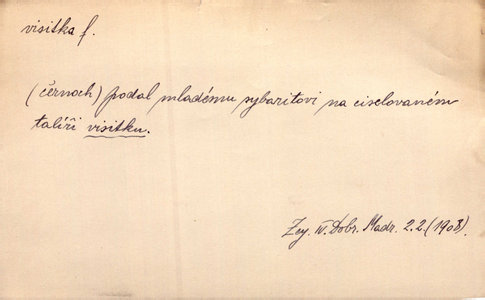 visitka f.
(černoch) podal mladému sybaritovi na ciselovaném
talíři visitku.
Zey. IV. Dobr. Madr. 2.2. (1908).